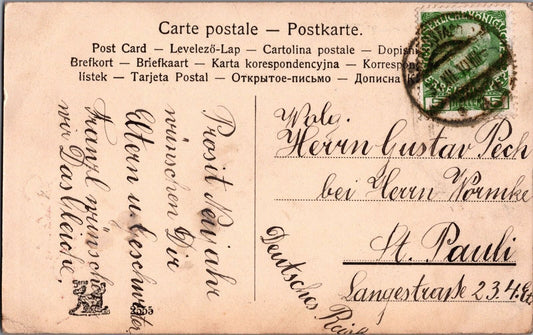 Carte postale — Postkarte.
Post Card — Levelező-Lap — Cartolina postale — Dopisni
Brefkort — Briefkaart — Karta korespondencyjna — Korrespon
lístek — Tarjeta Postal — Открытое-письмо — Дописна
5
Prosit Neujahr
wünschen Dir
Eltern u. Geschwister
Franzl wünsche
wir Das Gleiche.
2555
Wolg.
Herrn Gustav Pech
bei Herrn Wörmke
St. Pauli
Langestraße 23.4.Et
Deutsches Reich